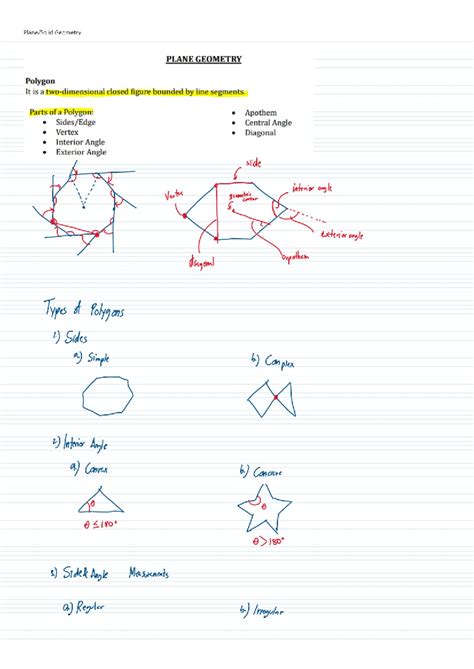 Plane/Solid Geometry
PLANE GEOMETRY
Polygon
It is a two-dimensional closed figure bounded by line segments.
Parts of a Polygon:
• Sides/Edge
• Vertex
• Interior Angle
• Exterior Angle
• Apothem
• Central Angle
• Diagonal
side
Vertex
geometric center
interior angle
exterior angle
diagonal
apothem
Types of Polygons
1) Sides
a) Simple
b) Complex
2) Interior Angle
a) Convex
b) Concave
θ
θ
θ ≤ 180°
θ > 180°
3) Side & Angle Measurements
a) Regular
b) Irregular